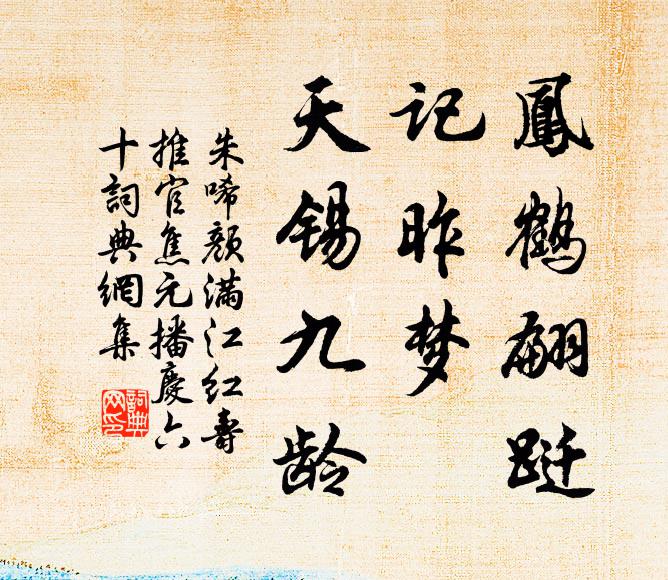 鳳鶴翩跹
记昨梦
天锡九龄
朱唏颜滿江红壽
推官焦元播慶六
十詞典網集
詞典
网印